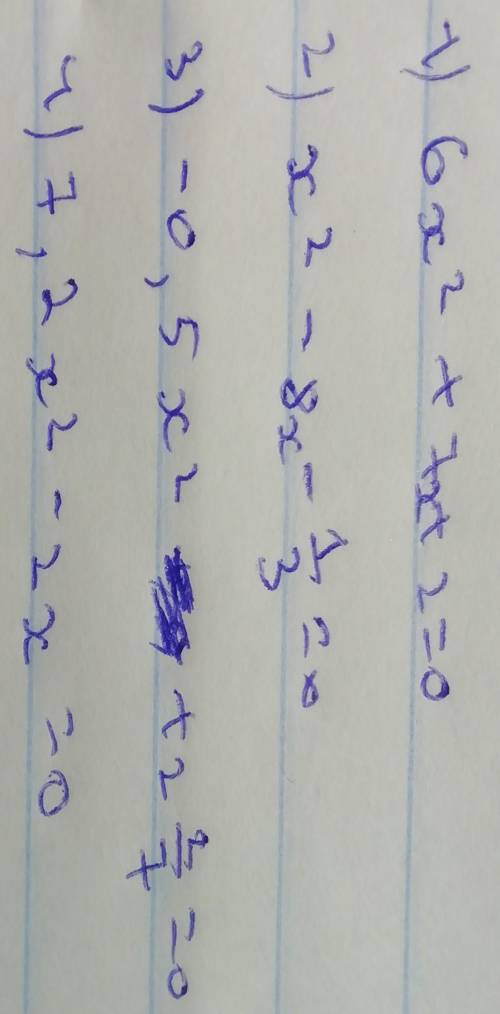 1) 6x² + 7x + 2 = 0
2) x² - 8x - 1/3 = 0
3) -0,5x² + 2 1/7 = 0
4) 7,2x² - 2x = 0